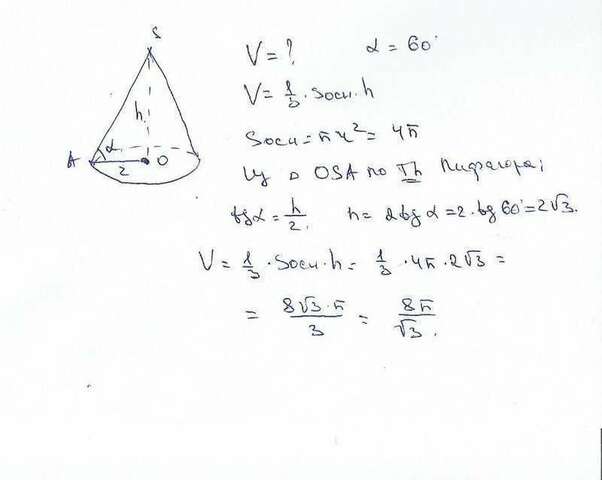 S
V = ? α = 60°
V = 1/3 · Sосн · h
h
Sосн = πr² = 4π
A α O
2
Из △ OSA по Th Пифагора:
tgα = h/2. h = 2tgα = 2·tg60° = 2√3.
V = 1/3 · Sосн · h = 1/3 · 4π · 2√3 =
= 8√3·π/3 = 8π/√3.